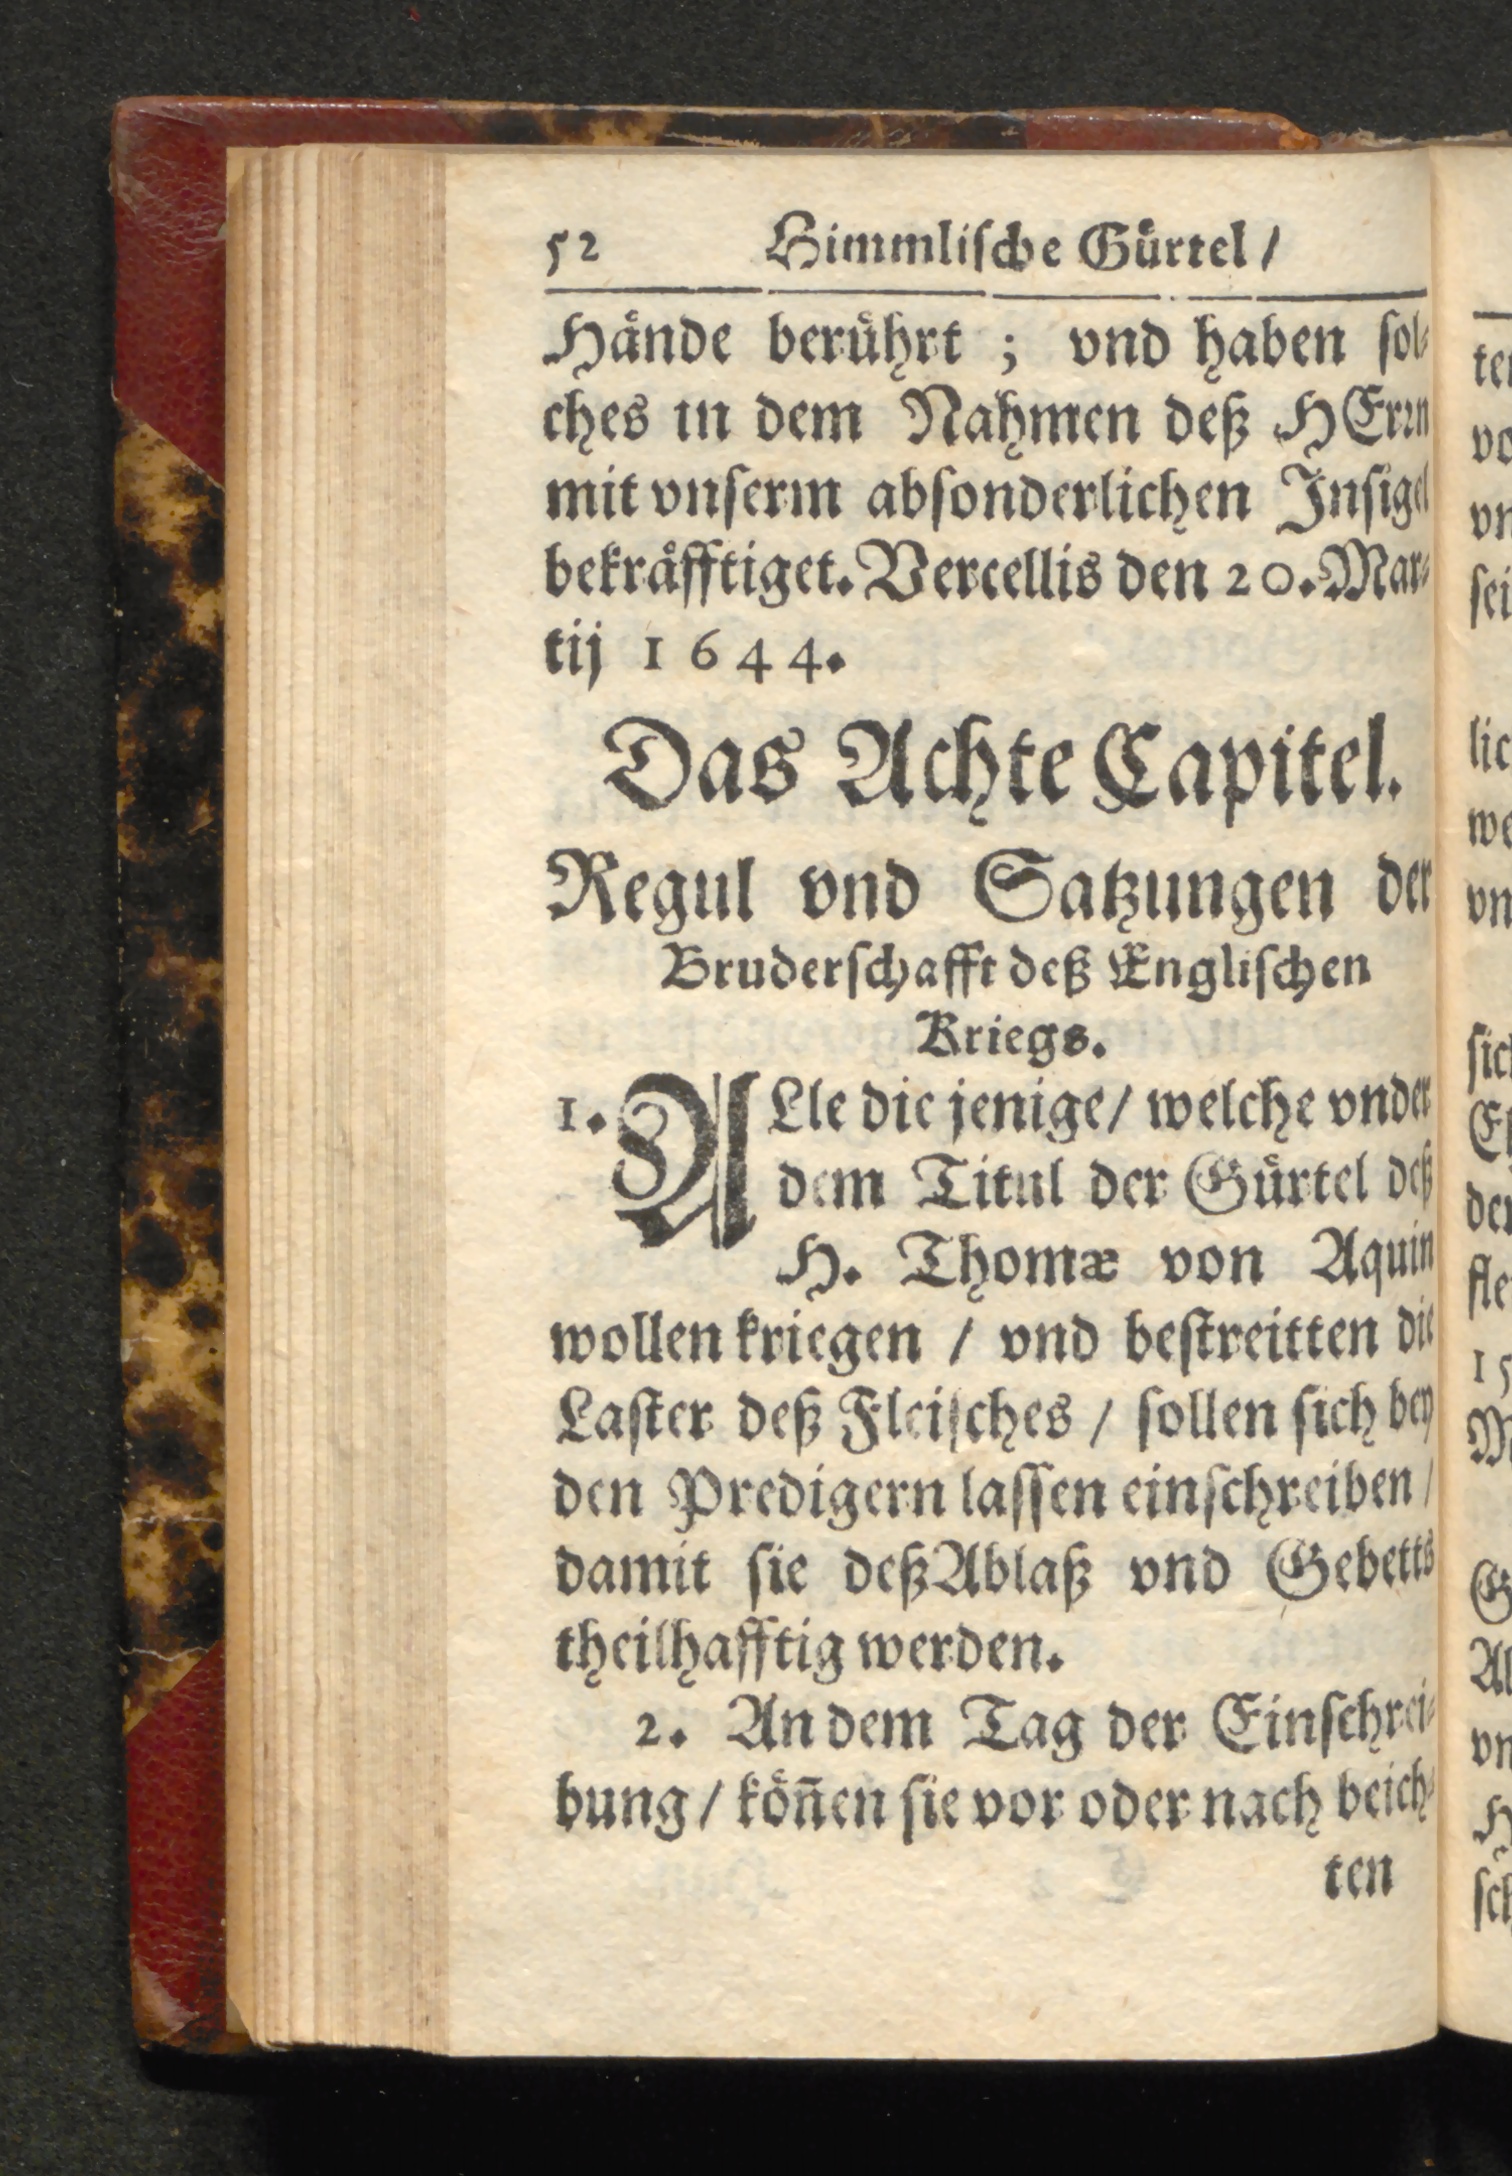 52 Himmliſche Guͤrtel /
Haͤnde beruͤhrt ; vnd haben ſol⸗
ches in dem Nahmen deß HErꝛn
mit vnſerm abſonderlichen Inſigel
bekraͤfftiget. Vercellis den 20. Mar⸗
tij 1644.
Das Achte Capitel.
Regul vnd Satzungen der
Bruderſchafft deß Engliſchen
Kriegs.
1. ALle die jenige / welche vnder
dem Titul der Guͤrtel deß
H. Thomæ von Aquin
wollen kriegen / vnd beſtreitten die
Laſter deß Fleiſches / ſollen ſich bey
den Predigern laſſen einſchreiben /
damit ſie deß Ablaß vnd Gebetts
theilhafftig werden.
2. An dem Tag der Einſchrei⸗
bung / koͤn̄en ſie vor oder nach beich⸗
ten